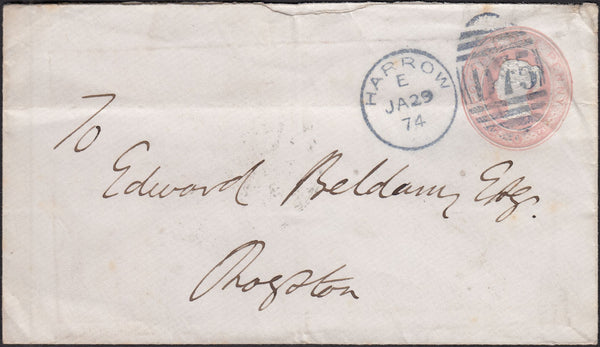 HARROW
E
JA29
74
To
Edward Beldam Esq.
Royston